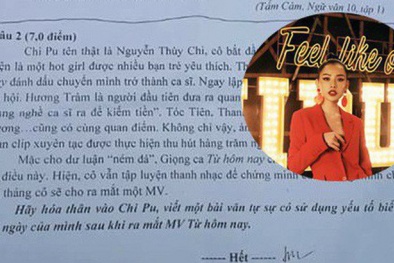 (Tấm Cám, Ngữ văn 10, tập 1)
âu 2 (7,0 điểm)
Chi Pu tên thật là Nguyễn Thùy Chi, cô bắt đầ
ện là một hot girl được nhiều bạn trẻ yêu thích. Th
y đánh dấu chuyển mình trở thành ca sĩ. Ngay lập
hội. Hương Tràm là người đầu tiên đưa ra quan
ụng nghề ca sĩ ra để kiếm tiền”, Tóc Tiên, Than
ơng…cũng có cùng quan điểm. Không chỉ vậy,
n clip xuyên tạc được thực hiện thu hút hàng trăm n
Mặc cho dư luận “ném đá”, Giọng ca Từ hôm nay
điều này. Hiện, cô vẫn tập luyện thanh nhạc để chứng minh
tháng cô sẽ cho ra mắt một MV.
Hãy hóa thân vào Chi Pu, viết một bài văn tự sự có sử dụng yếu tố biể
ngày của mình sau khi ra mắt MV Từ hôm nay.
------ Hết ------
Feel like